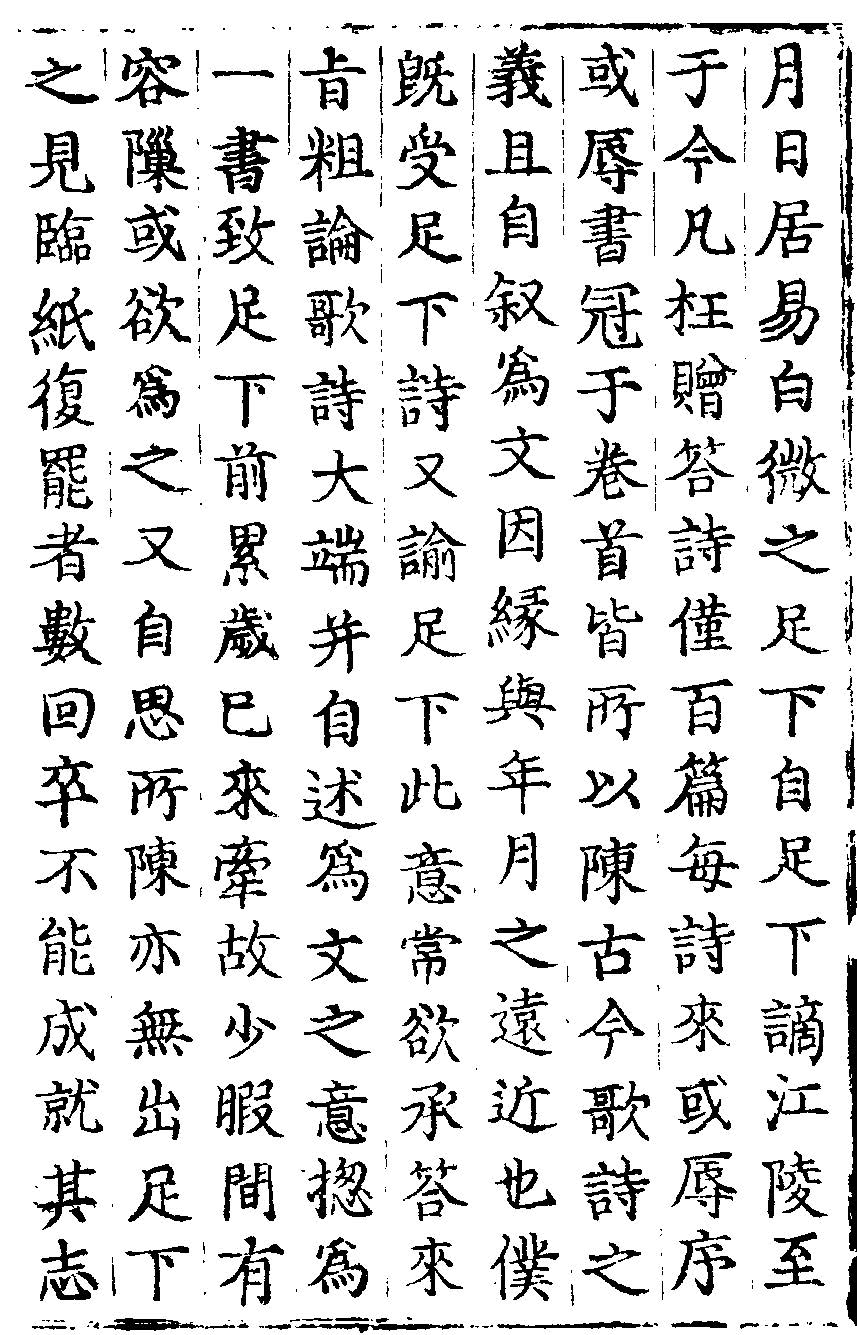 月日居易白微之足下自足下謫江陵至
于今凡枉贈答詩僅百篇每詩來或辱序
或辱書冠于卷首皆所以陳古今歌詩之
義且自叙爲文因縁與年月之遠近也僕
旣受足下詩又諭足下此意常欲承答來
㫖粗論歌詩大端并自述爲文之意揔爲
一書致足下前累歲已來牽故少暇間有
容隟或欲爲之又自思所陳亦無出足下
之見臨紙復罷者數回卒不能成就其志